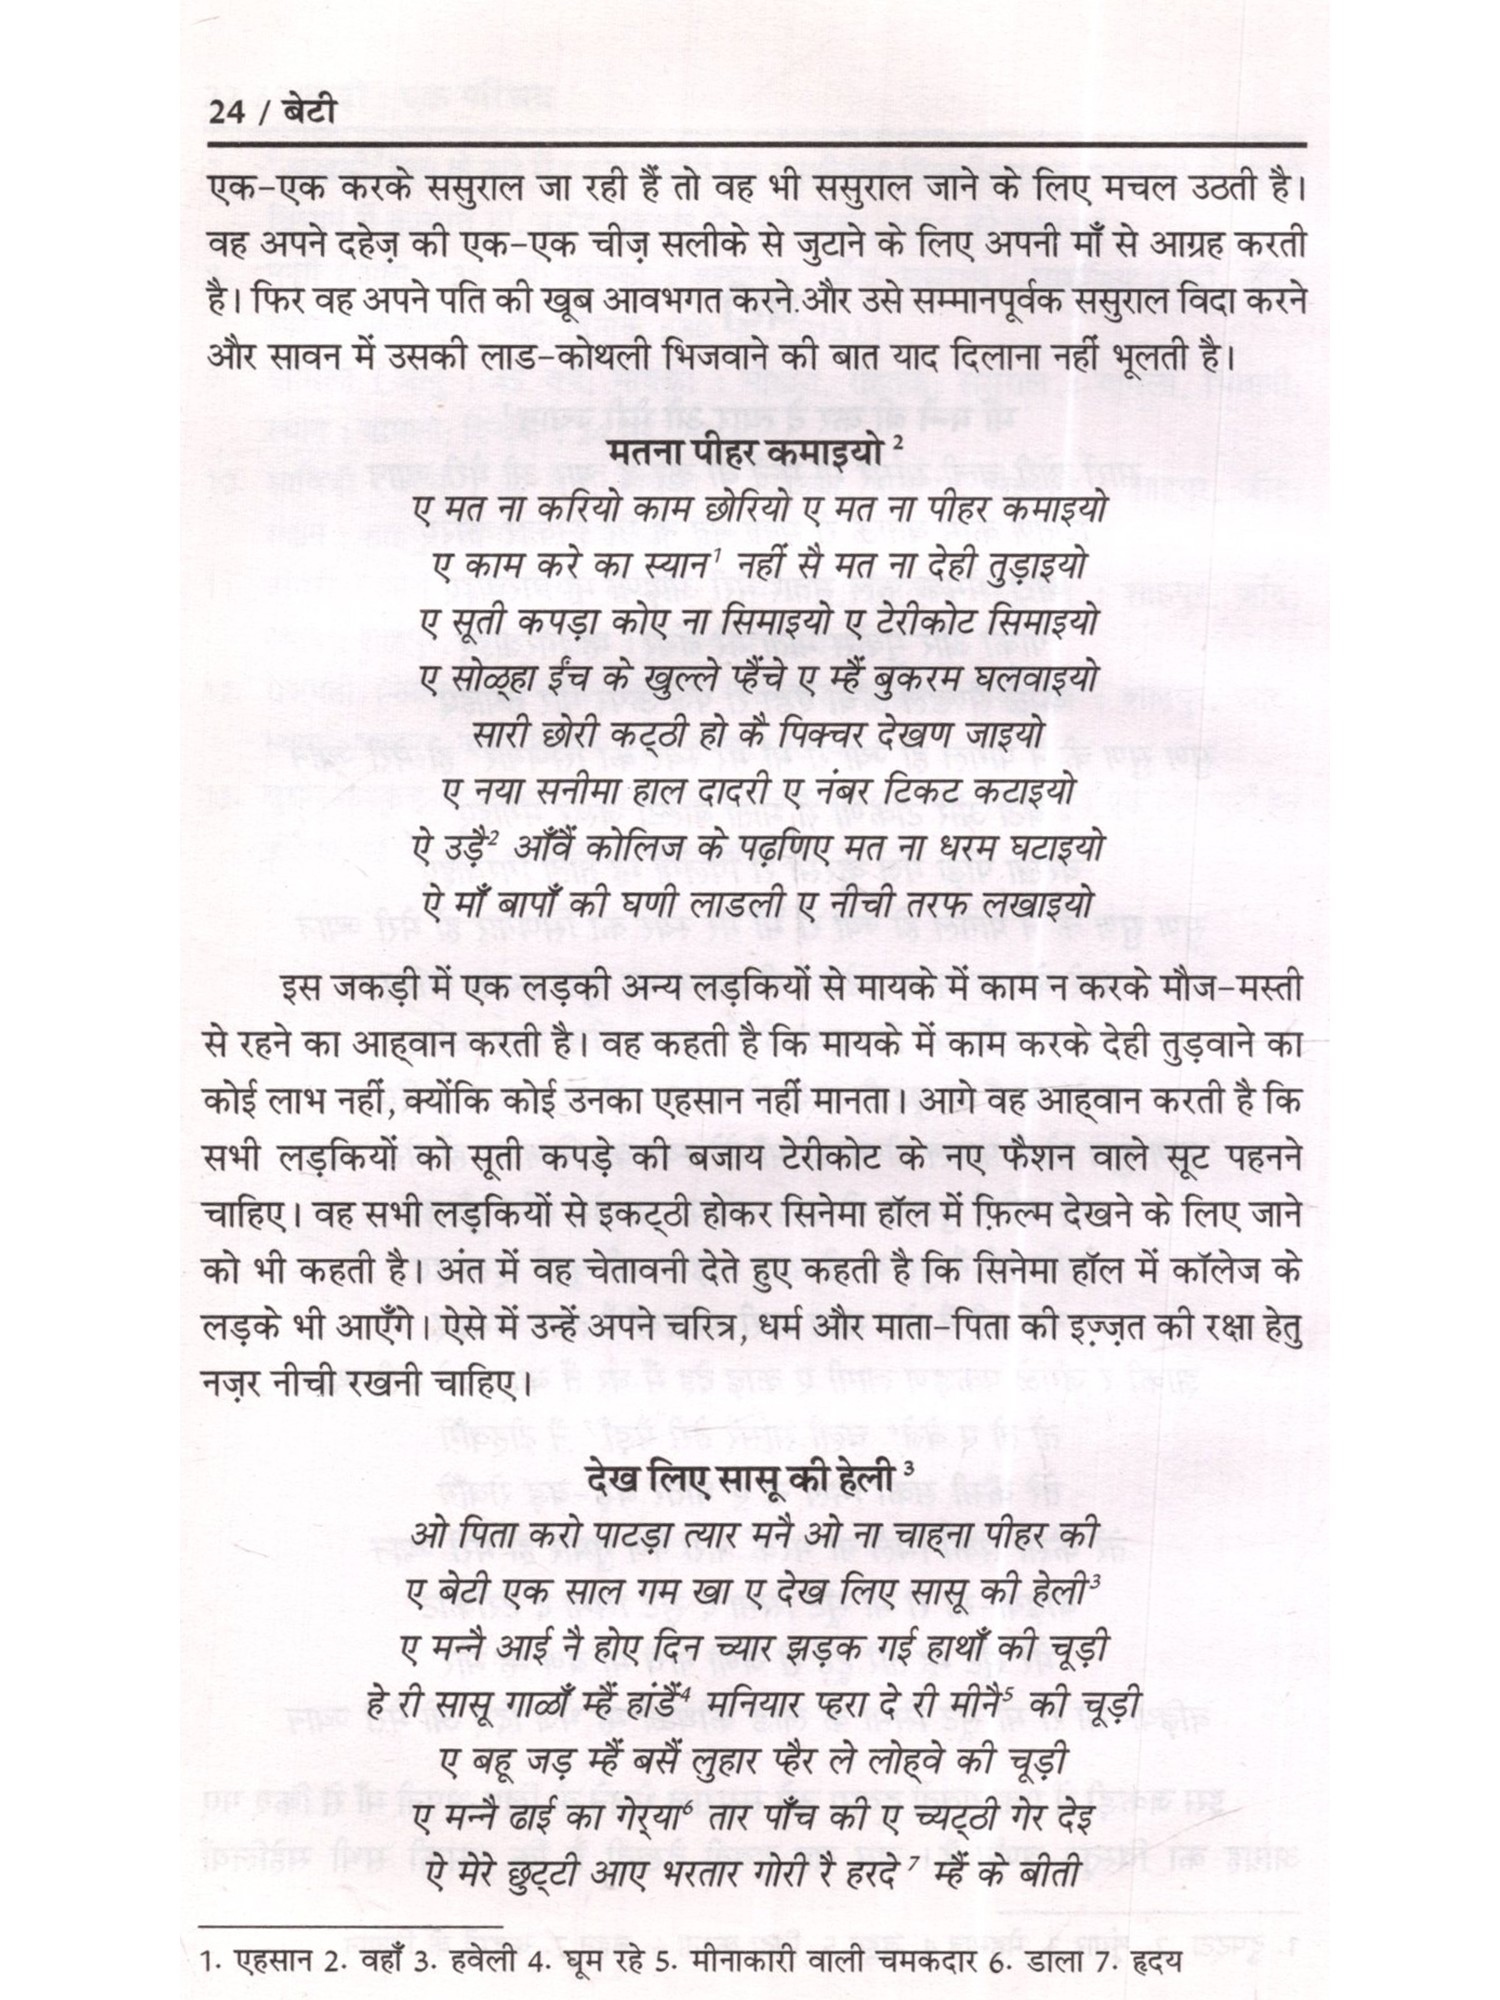 24 / बेटी
एक-एक करके ससुराल जा रही हैं तो वह भी ससुराल जाने के लिए मचल उठती है।
वह अपने दहेज़ की एक-एक चीज़ सलीके से जुटाने के लिए अपनी माँ से आग्रह करती
है। फिर वह अपने पति की खूब आवभगत करने और उसे सम्मानपूर्वक ससुराल विदा करने
और सावन में उसकी लाड-कोथली भिजवाने की बात याद दिलाना नहीं भूलती है।
मतना पीहर कमाइयो ²
ए मत ना करियो काम छोरियो ए मत ना पीहर कमाइयो
ए काम करे का स्यान¹ नहीं सै मत ना देही तुड़ाइयो
ए सूती कपड़ा कोए ना सिमाइयो ए टेरीकोट सिमाइयो
ए सोळ्हा ईंच के खुल्ले प्हैंचे ए म्हैं बुकरम घलवाइयो
सारी छोरी कट्ठी हो कै पिक्चर देखण जाइयो
ए नया सनीमा हाल दादरी ए नंबर टिकट कटाइयो
ऐ उड़ै² आँवैं कोलिज के पढ़णिए मत ना धरम घटाइयो
ऐ माँ बापाँ की घणी लाडली ए नीची तरफ लखाइयो
इस जकड़ी में एक लड़की अन्य लड़कियों से मायके में काम न करके मौज-मस्ती
से रहने का आह्वान करती है। वह कहती है कि मायके में काम करके देही तुड़वाने का
कोई लाभ नहीं, क्योंकि कोई उनका एहसान नहीं मानता। आगे वह आह्वान करती है कि
सभी लड़कियों को सूती कपड़े की बजाय टेरीकोट के नए फैशन वाले सूट पहनने
चाहिए। वह सभी लड़कियों से इकट्ठी होकर सिनेमा हॉल में फ़िल्म देखने के लिए जाने
को भी कहती है। अंत में वह चेतावनी देते हुए कहती है कि सिनेमा हॉल में कॉलेज के
लड़के भी आएँगे। ऐसे में उन्हें अपने चरित्र, धर्म और माता-पिता की इज़्ज़त की रक्षा हेतु
नज़र नीची रखनी चाहिए।
देख लिए सासू की हेली ³
ओ पिता करो पाटड़ा त्यार मनै ओ ना चाह्ना पीहर की
ए बेटी एक साल गम खा ए देख लिए सासू की हेली³
ए मन्नै आई नै होए दिन च्यार झड़क गई हाथाँ की चूड़ी
हे री सासू गाळाँ म्हैं हांडैं⁴ मनियार प्हरा दे री मीनै⁵ की चूड़ी
ए बहू जड़ म्हैं बसैं लुहार प्हैर ले लोह्वे की चूड़ी
ए मन्नै ढाई का गेर्‌या⁶ तार पाँच की ए च्यट्ठी गेर देइ
ऐ मेरे छुट्टी आए भरतार गोरी रै हरदे ⁷ म्हैं के बीती
1. एहसान 2. वहाँ 3. हवेली 4. घूम रहे 5. मीनाकारी वाली चमकदार 6. डाला 7. हृदय